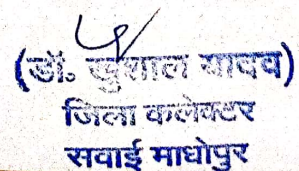 (डॉ. खुशाल यादव)
जिला कलेक्टर
सवाई माधोपुर